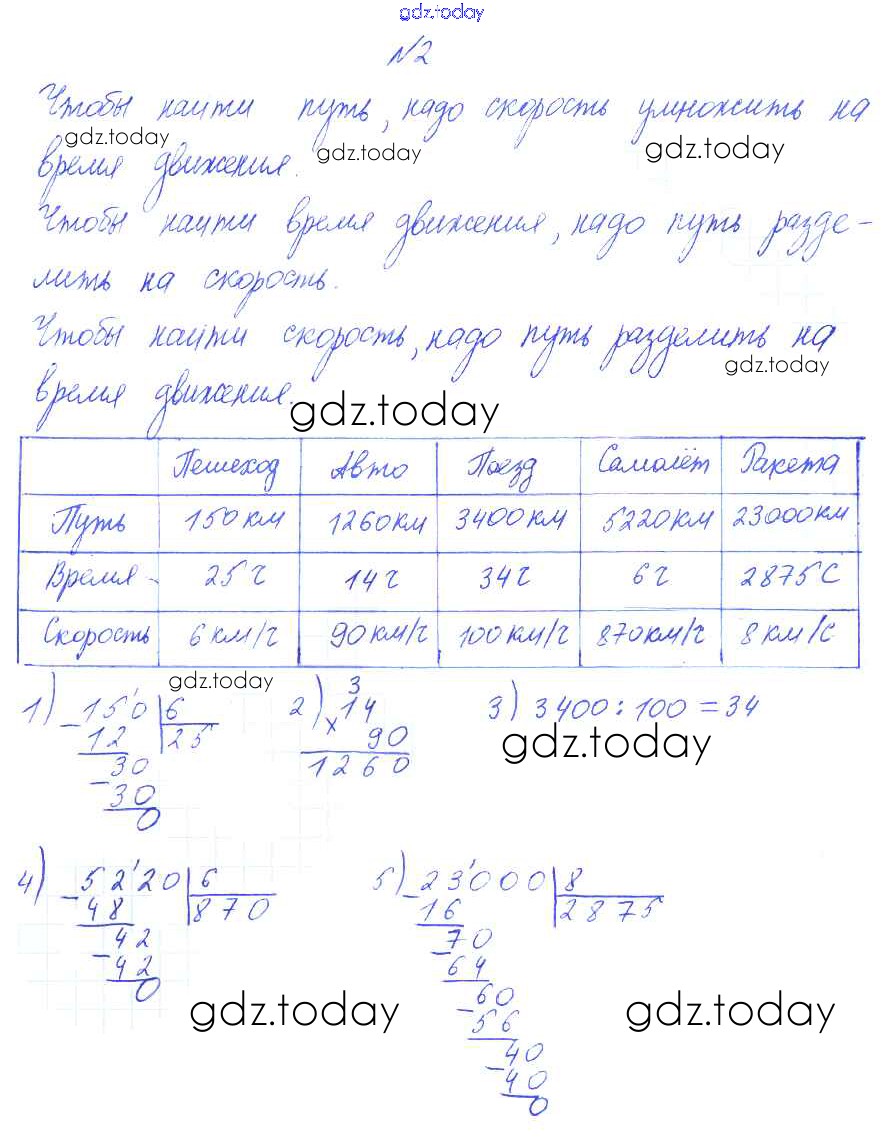 gdz.today
№2
Чтобы найти путь, надо скорость умножить на
gdz.today gdz.today gdz.today
время движения.
Чтобы найти время движения, надо путь разде-
лить на скорость.
Чтобы найти скорость, надо путь разделить на
gdz.today
время движения.
gdz.today
Пешеход Авто Поезд Самолёт Ракета
Путь 150 км 1260 км 3400 км 5220 км 23000 км
Время 25 ч 14 ч 34 ч 6 ч 2875 с
Скорость 6 км/ч 90 км/ч 100 км/ч 870 км/ч 8 км/с
gdz.today
1) 150 6 2) 3 14 3) 3400 : 100 = 34
- 12 25 × 90 gdz.today
30 1260
- 30
0
4) 5220 6 5) 23000 8
- 48 870 - 16 2875
42 70
- 42 - 64
0 60
gdz.today gdz.today
- 56
40
- 40
0